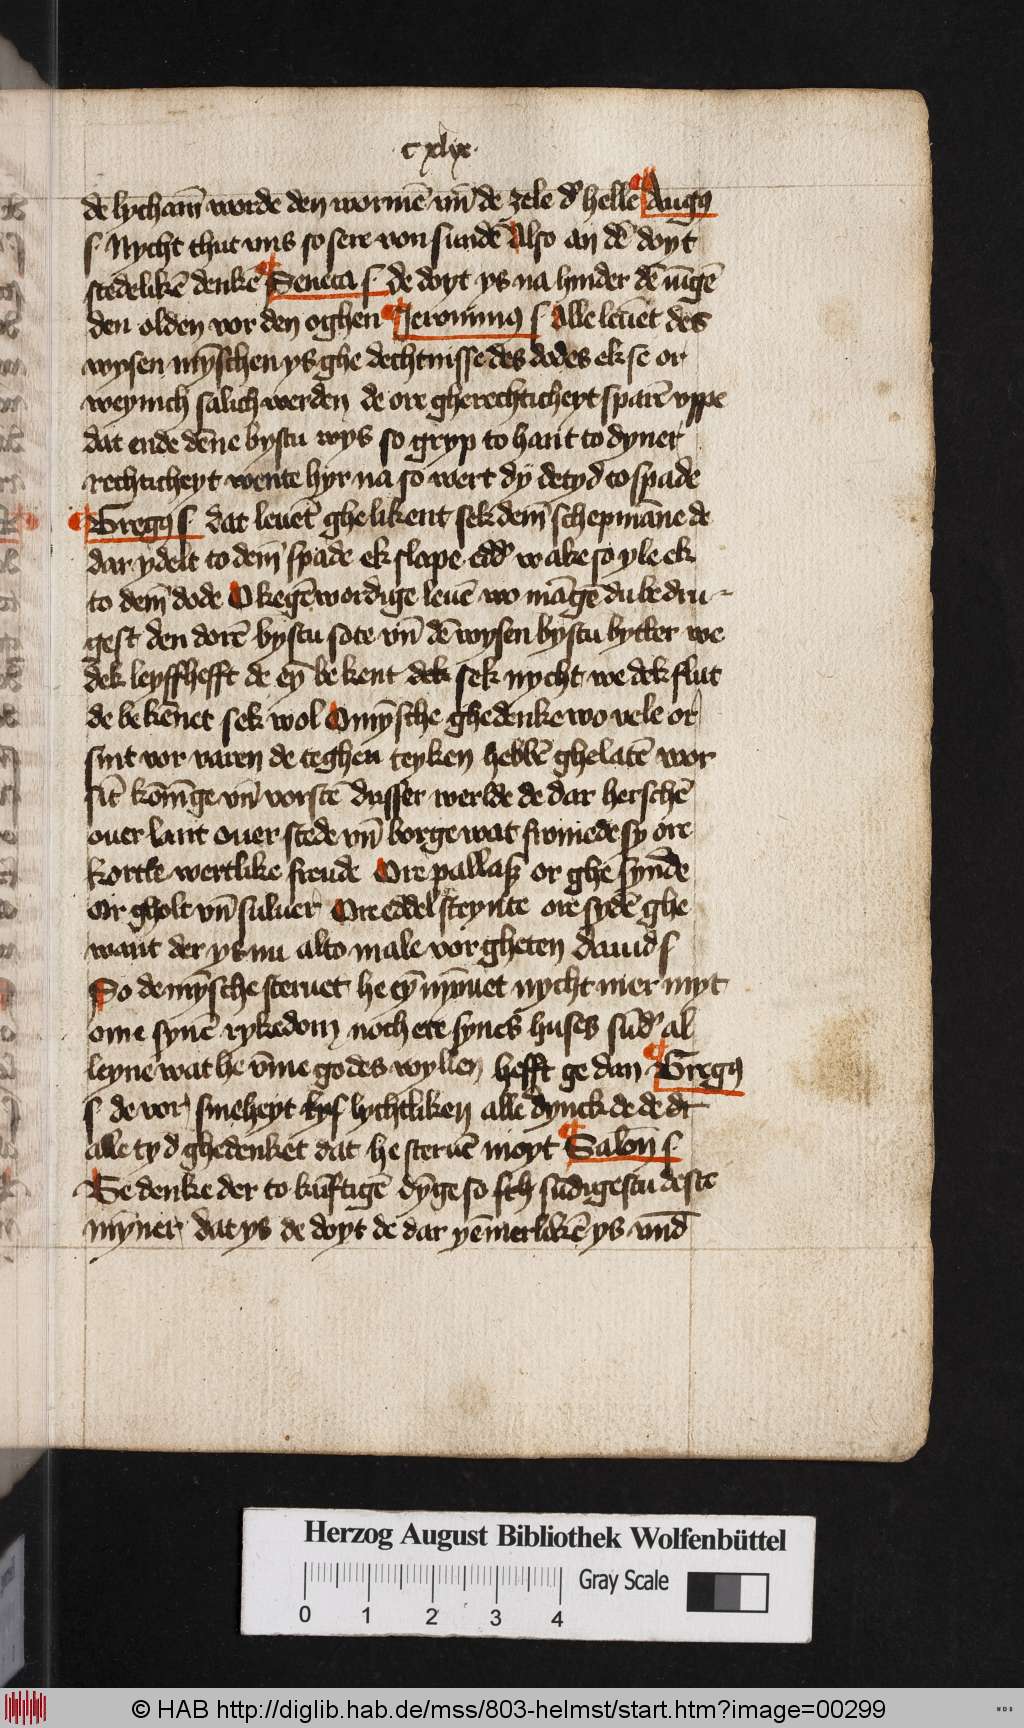 cxlix
de lycham̄ worde den wormē vn̄ de zele d' helle Augꝯ
s Nycht thut vns so sere von sundē Also an dē doyt
stedelikē denkē Seneca s de doyt ys na hinder dē iūgē
den olden vor den oghen Jeronimꝯ s Alle leuēt des
wysen mȳschen ys ghe dechtnisse des dodes ek se or
weynich salich werden de ore gherechticheyt sparē vppe
dat ende dēne bystu wys so gryp to hant to dyner
rechticheyt wente hyr na so wert dy de tyd to spade
Gregꝯ s dat leuēt ghe likent sek dem̄ schepmāne de
dar ydelt to dem̄ spade ek slape edd' wake so yle ek
to dem̄ dode O kegēwordige leuē wo māgē du be dru-
gest den dorē bystu sote vn̄ dē wysen bystu bytter we
dek leyffhefft de eȳ be kent dek sek nycht we dek flut
de be kēnet sek wol O mȳsche ghedenke wo vele or
sint vor varen de teghen teyken hebbē ghelatē wor
sīt kōnīge vn̄ vorstē dusser werlde de dar herschē
ouer lant ouer stede vn̄ borge wat fromede sy ore
kortte wertlike freude Ore pallasz or ghe synde
Or gholt vn̄ suluer Ore eddel steynte ore sydē ghe
want der ys nu alto male vor gheten dauid s
So de mȳsche steruet he eȳ nȳmet nycht mer myt
ome synē rykedom noch ere synes huses sūd' al
leyne wat he v̄me godes wyllen hefft ge dan Gregꝯ
s de vor smeheyt lys lychtliken alle dynck de de dr
alle tyd ghedenket dat he steruē moyt Salon̄ s
Ge denke der to kūftigē dȳge so sch sūdigestu deste
myner dat ys de doyt de dar yēmerlikē ys vnd̄
Herzog August Bibliothek Wolfenbüttel
Gray Scale
0 1 2 3 4
© HAB http://diglib.hab.de/mss/803-helmst/start.htm?image=00299